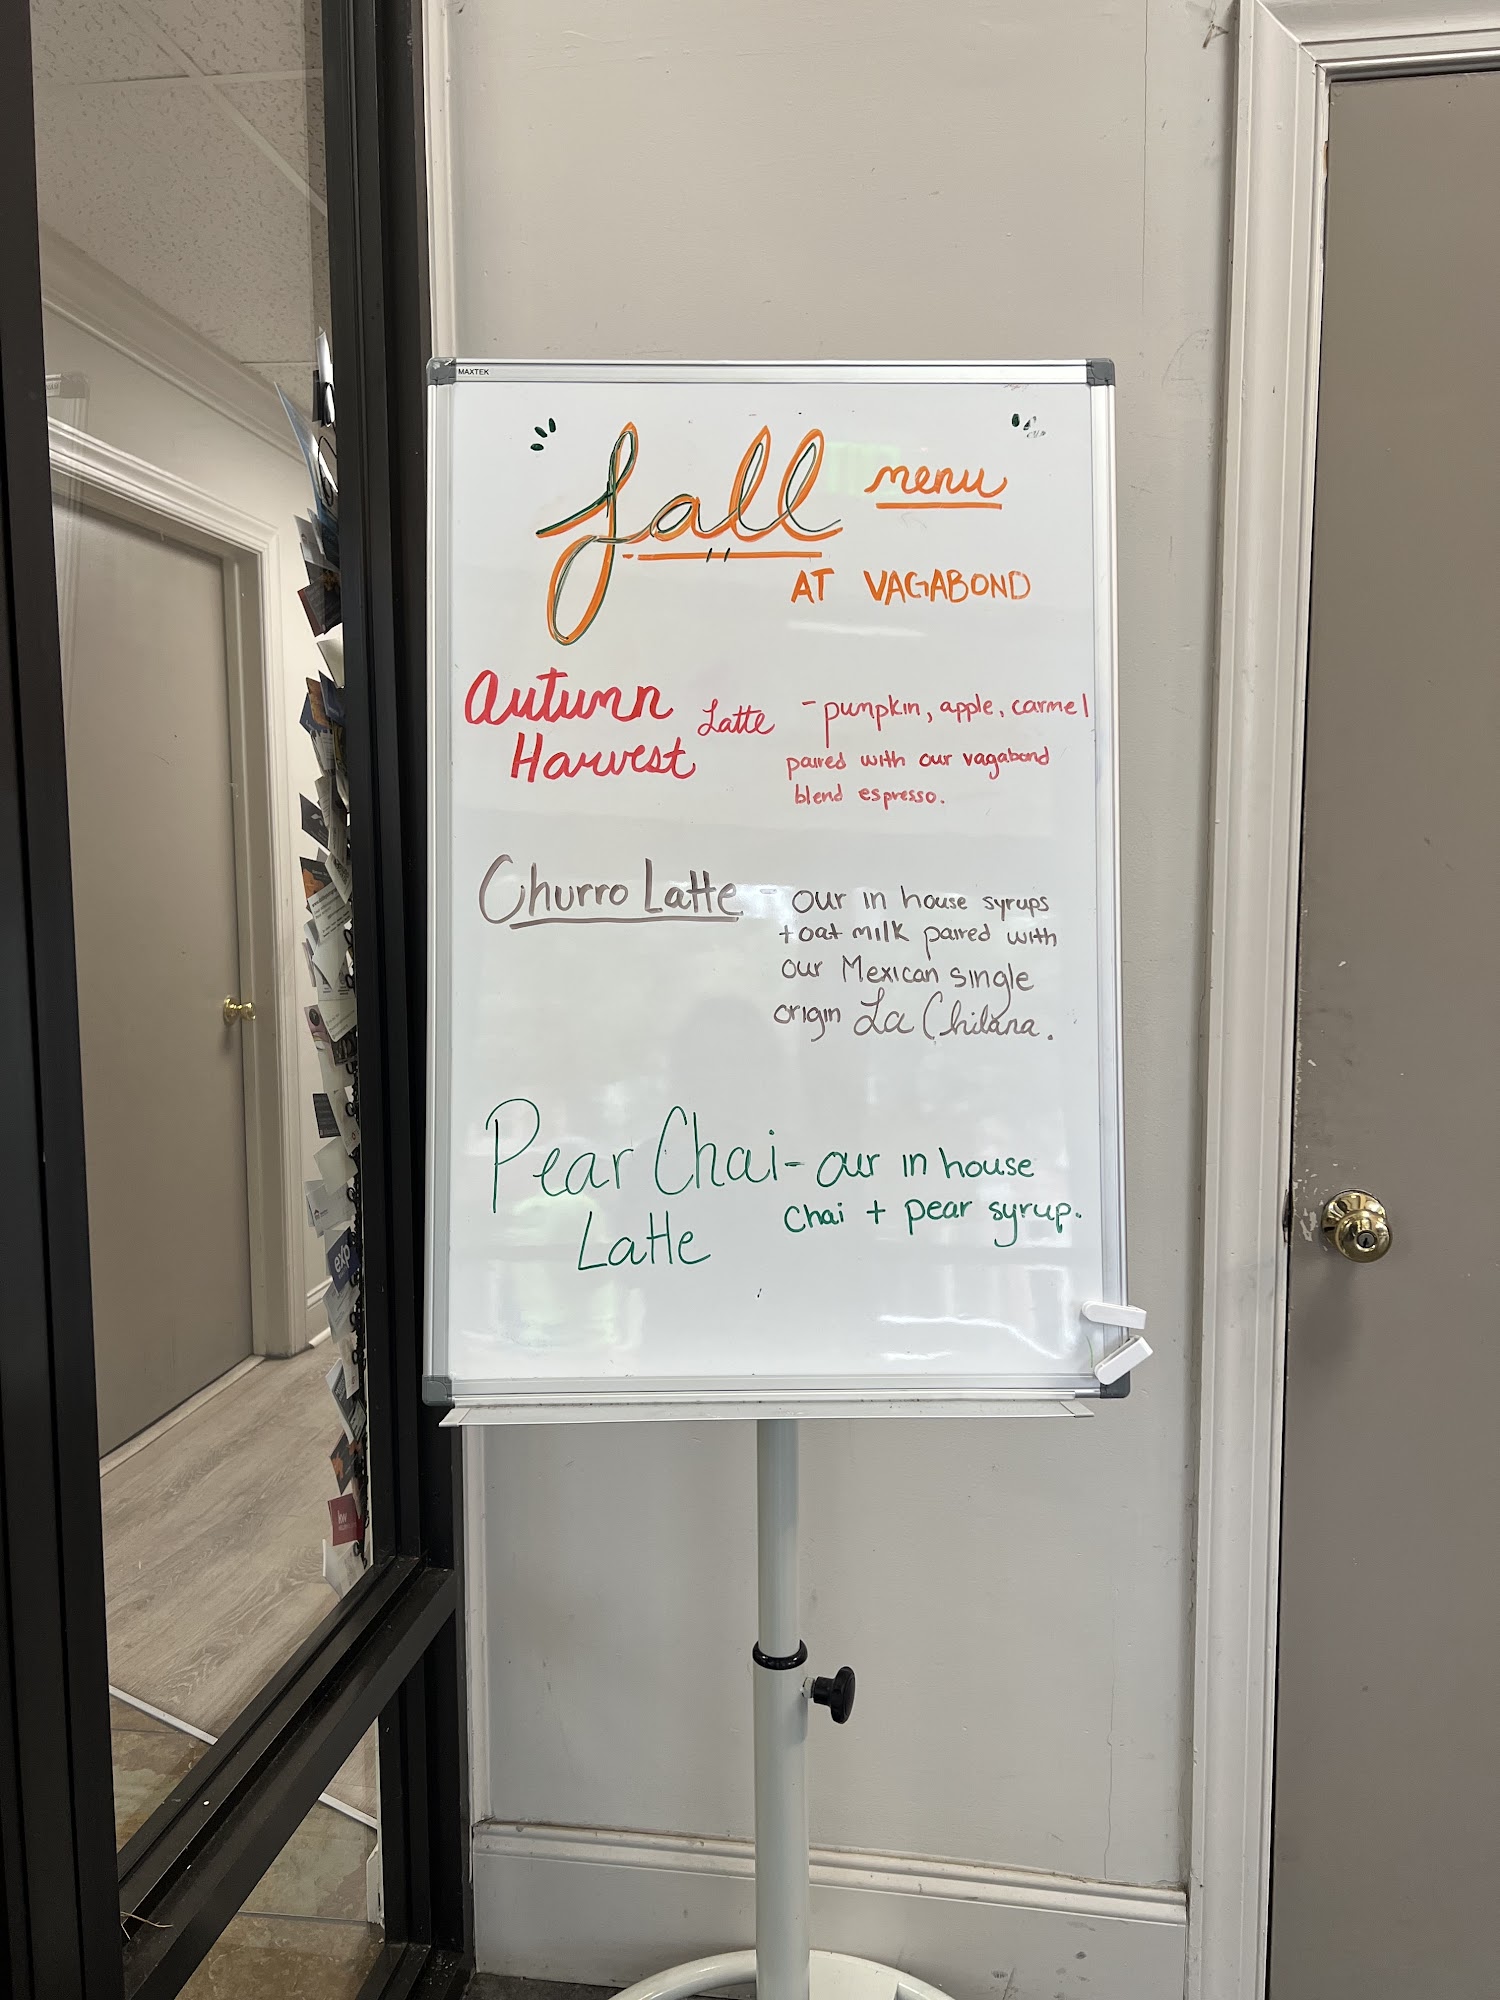 MAXTEK
fall menu
AT VAGABOND
Autumn Harvest Latte - pumpkin, apple, carmel
paired with our vagabond
blend espresso.
Churro Latte - our in house syrups
+ oat milk paired with
our Mexican single
origin La Chilana.
Pear Chai - our in house
Latte chai + pear syrup.
exp
kw